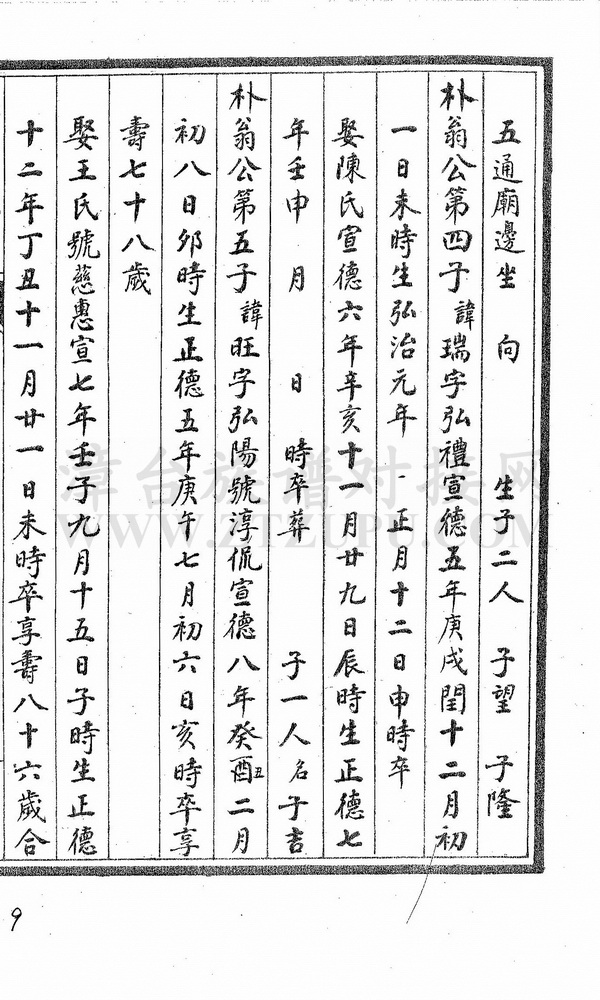 五通廟邊坐 向 生子二人 子望 子隆
朴翁公第四子諱瑞字弘禮宣德五年庚戌閏十二月初
一日未時生弘治元年 正月十二日申時卒
娶陳氏宣德六年辛亥十一月廿九日辰時生正德七
年壬申 月 日 時卒葬 子一人名子吉
朴翁公第五子諱旺字弘陽號淳侃宣德八年癸酉丑二月
初八日卯時生正德五年庚午七月初六日亥時卒享
壽七十八歲
娶王氏號慈惠宣七年壬子九月十五日子時生正德
十二年丁丑十一月廿一日未時卒享壽八十六歲合
漳台族谱对接网
WWW.ZTZUPU.COM
9